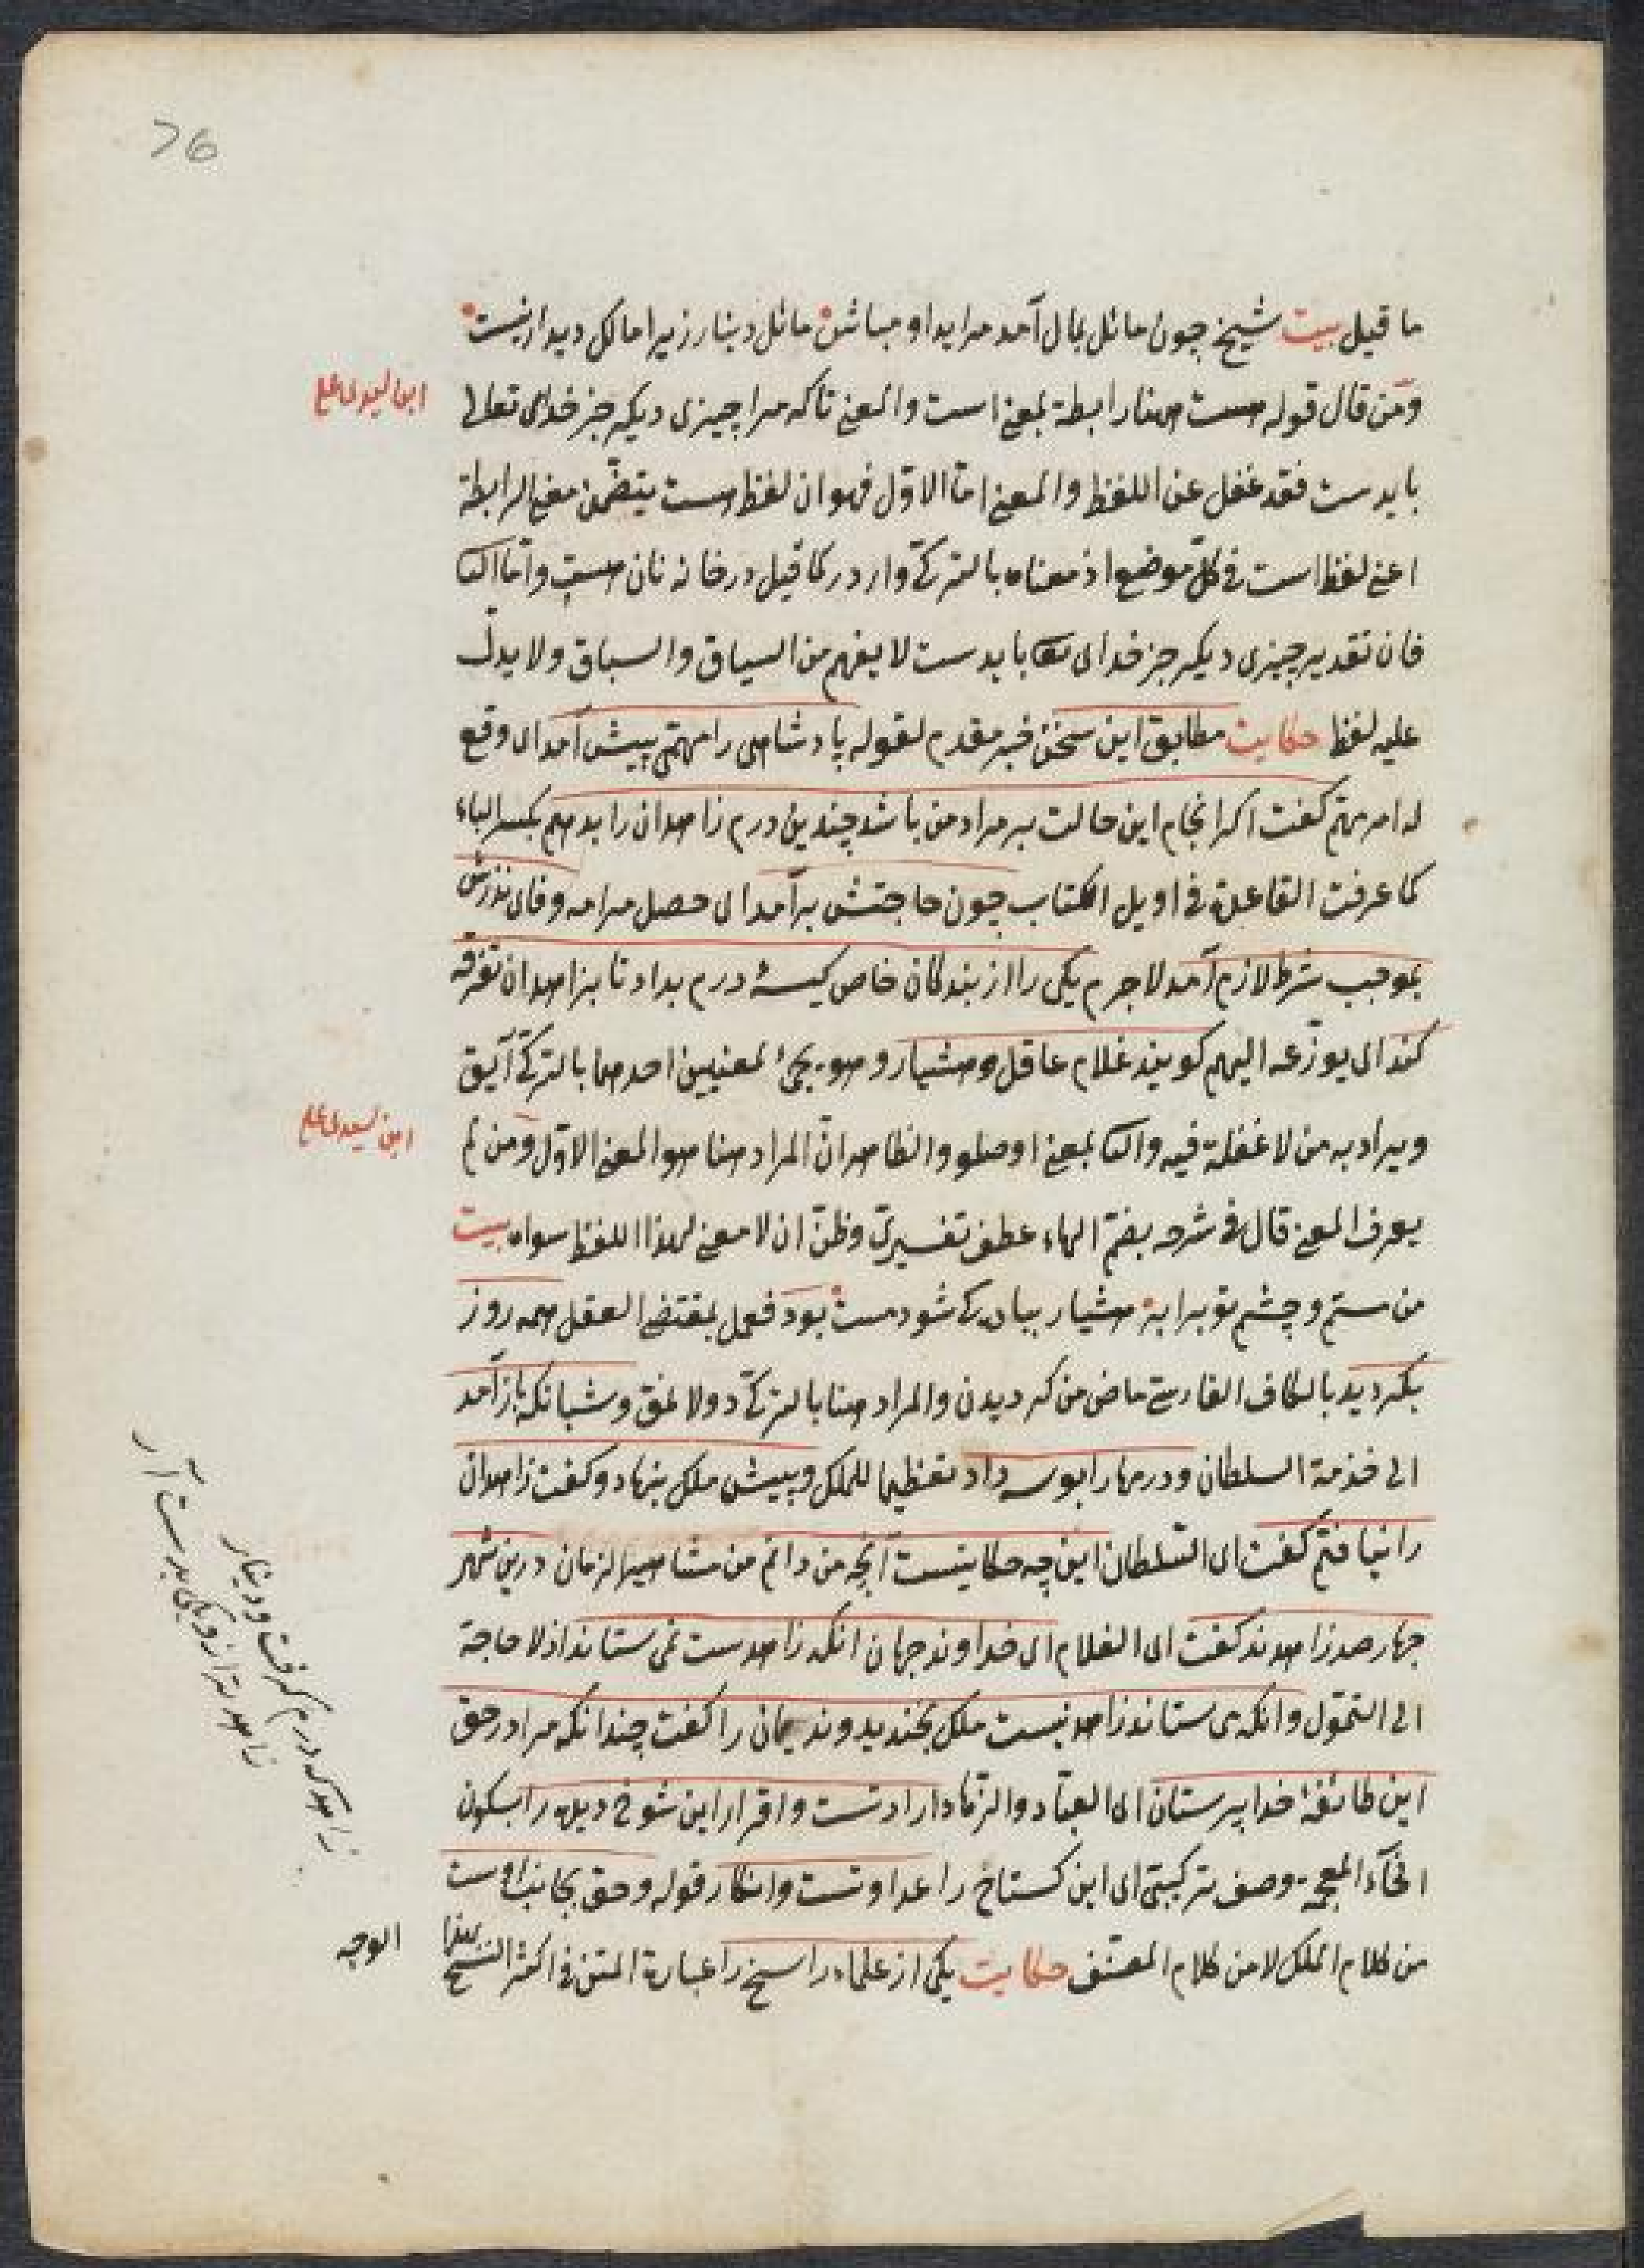 76
ما قيل بيت شيخ چون مائل بمال آمد مريد او مباش مائل دينار زيرا مالك ديدار نيست
ومن قال قوله هست هنا رابطة بمعنى است والمعنى تا كه مرا چيزى ديكر جز خداى تعالى
ابن ليدى على
بايدست فقد غفل عن اللفظ والمعنى امّا الاوّل فهو ان لفظ هست يتضمّن معنى الرابطة
اعنى لفظ است فى كلّ موضع اذ معناه بالتركىّ واردر كما قيل در خانه نان هست وامّا الثا
فان تقدير چيزى ديكر جز خداى تعا بايدست لا يفهم من السياق والسباق ولا يدلّ
عليه لفظ حكايت مطابق اين سخن خبر مقدم لقوله پادشاهى را مهمّى پيش آمد اى وقع
له امر مهم كفت اكر انجام اين حالت بر مراد من باشد چندين درم زاهدان را بدهم بكسر الباء
كما عرفت القاعدة فى اويل الكتاب چون حاجتش برآمد اى حصل مرامه وفاى نذرش
بموجب شرط لازم آمد لاجرم يكى را از بندكان خاص كيسهٔ درم بداد تا بزاهدان تفرقه
كند اى يوزّعه اليهم كويند غلام عاقل وهشيار وهو يجئ لمعنيين احدهما بالتركىّ آيق
ويراد به من لا غفلة فيه والثا بمعنى اوصلو والظاهر انّ المراد هنا هو المعنى الاوّل ومن لم
ابن سيدى على
يعرف المعنى قال فى شرحه بضمّ الهاء عطف تفسيرىّ وظنّ ان لا معنى لهذا اللفظ سواه بيت
من مستم وچشم تو برابر هشيار بباده كى شود مست بود فعل بمقتضى العقل همه روز
بكرديد بالكاف الفارسىّ ماضى من كرديدن والمراد هنا بالتركىّ دولانمق وشبانكه بازآمد
الى خدمة السلطان ودرمها را بوسه داد تعظيما للملك وپيش ملك بنهاد وكفت زاهدان
را نيافتم كفت اى السّلطان اين چه حكايتست آنچه من دانم من مشاهير الزمان درين شهر
چهار صد زاهدند كفت اى الغلام اى خداوند جهان انكه زاهدست نمى ستاند اذ لا حاجة
الى التموّل وانكه مى ستاند زاهد نيست ملك بخنديد ونديمان را كفت چندانكه مرا در حق
اين طائفهٔ خدا پرستان اى العبّاد والزهّاد ارادتست واقرار اين شوخ ديده را بسكون
الخاء المعجمة وصف تركيبىّ اى اين كستاخ را عداوتست وانكار قوله وحق بجانب اوست
من كلام الملك لا من كلام المصنّف حكايت يكى از علماء راسخ را عبارة المتن فى اكثر النسخ هكذا
الوجه
زاهد كه درم كرفت ودينار
زاهدتر ازو يكى بدست آر